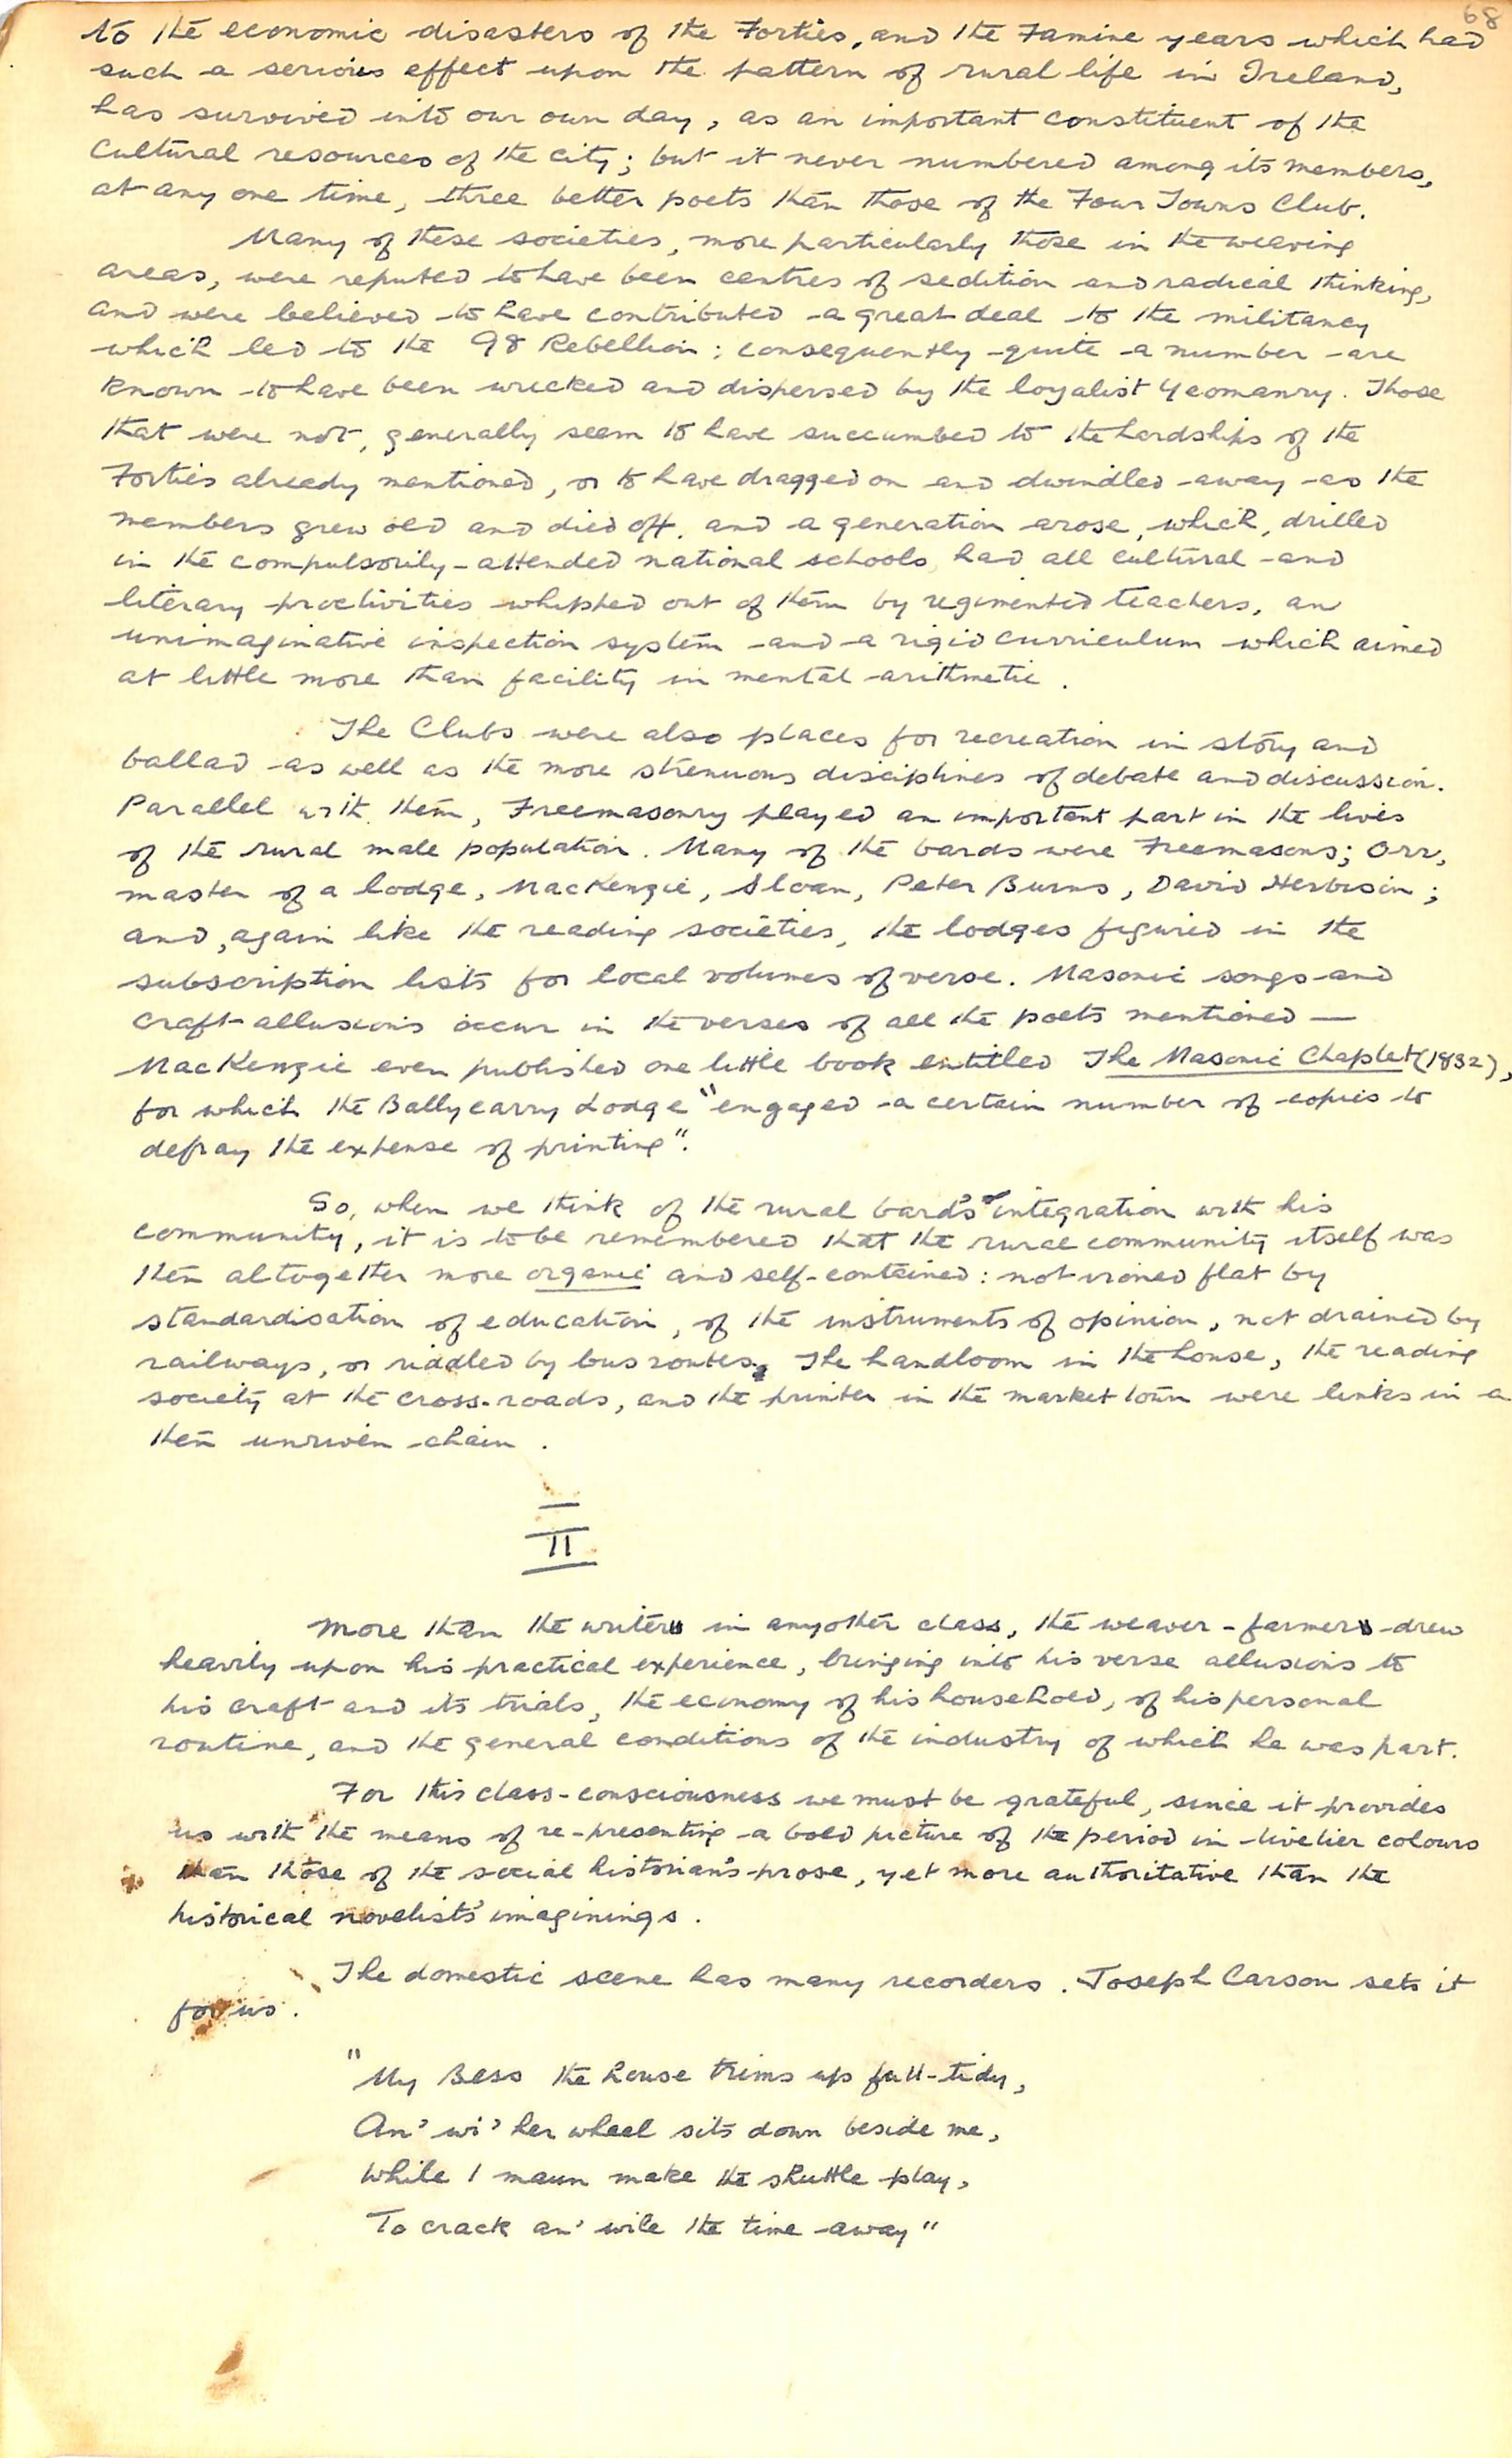 68
to the economic disasters of the Forties, and the Famine years which had
such a serious effect upon the pattern of rural life in Ireland,
has survived into our own day, as an important constituent of the
cultural resources of the city; but it never numbered among its members,
at any one time, three better poets than those of the Four Towns Club.
Many of these societies, more particularly those in the weaving
areas, were reputed to have been centres of sedition and radical thinking,
and were believed to have contributed a great deal to the militancy
which led to the 98 Rebellion; consequently quite a number are
known to have been wrecked and dispersed by the loyalist Yeomanry. Those
that were not, generally seem to have succumbed to the hardships of the
Forties already mentioned, or to have dragged on and dwindled away as the
members grew old and died off, and a generation arose, which, drilled
in the compulsorily-attended national schools, had all cultural and
literary proclivities whipped out of them by regimented teachers, an
unimaginative inspection system and a rigid curriculum which aimed
at little more than facility in mental arithmetic.
The Clubs were also places for recreation in story and
ballad as well as the more strenuous disciplines of debate and discussion.
Parallel with them, Freemasonry played an important part in the lives
of the rural male population. Many of the bards were Freemasons; Orr,
master of a lodge, MacKenzie, Sloan, Peter Burns, David Herbison;
and, again like the reading societies, the lodges figured in the
subscription lists for local volumes of verse. Masonic songs and
craft-allusions occur in the verses of all the poets mentioned —
MacKenzie even published one little book entitled The Masonic Chaplet (1832),
for which the Ballycarry Lodge "engaged a certain number of copies to
defray the expense of printing".
So, when we think of the rural bard's integration with his
community, it is to be remembered that the rural community itself was
then altogether more organic and self-contained: not ironed flat by
standardisation of education, of the instruments of opinion, not drained by
railways, or riddled by bus routes. The handloom in the house, the reading
society at the cross-roads, and the printer in the market town were links in a
then unriven chain.
II
More than the writer in any other class, the weaver-farmer drew
heavily upon his practical experience, bringing into his verse allusions to
his craft and its trials, the economy of his household, of his personal
routine, and the general conditions of the industry of which he was part.
For this class-consciousness we must be grateful, since it provides
us with the means of re-presenting a bold picture of the period in livelier colours
than those of the social historian's prose, yet more authoritative than the
historical novelists' imaginings.
The domestic scene has many recorders. Joseph Carson sets it
for us.
"My Bess the house trims up full-tidy,
An' wi' her wheel sits down beside me,
While I maun make the shuttle play,
To crack an' wile the time away"